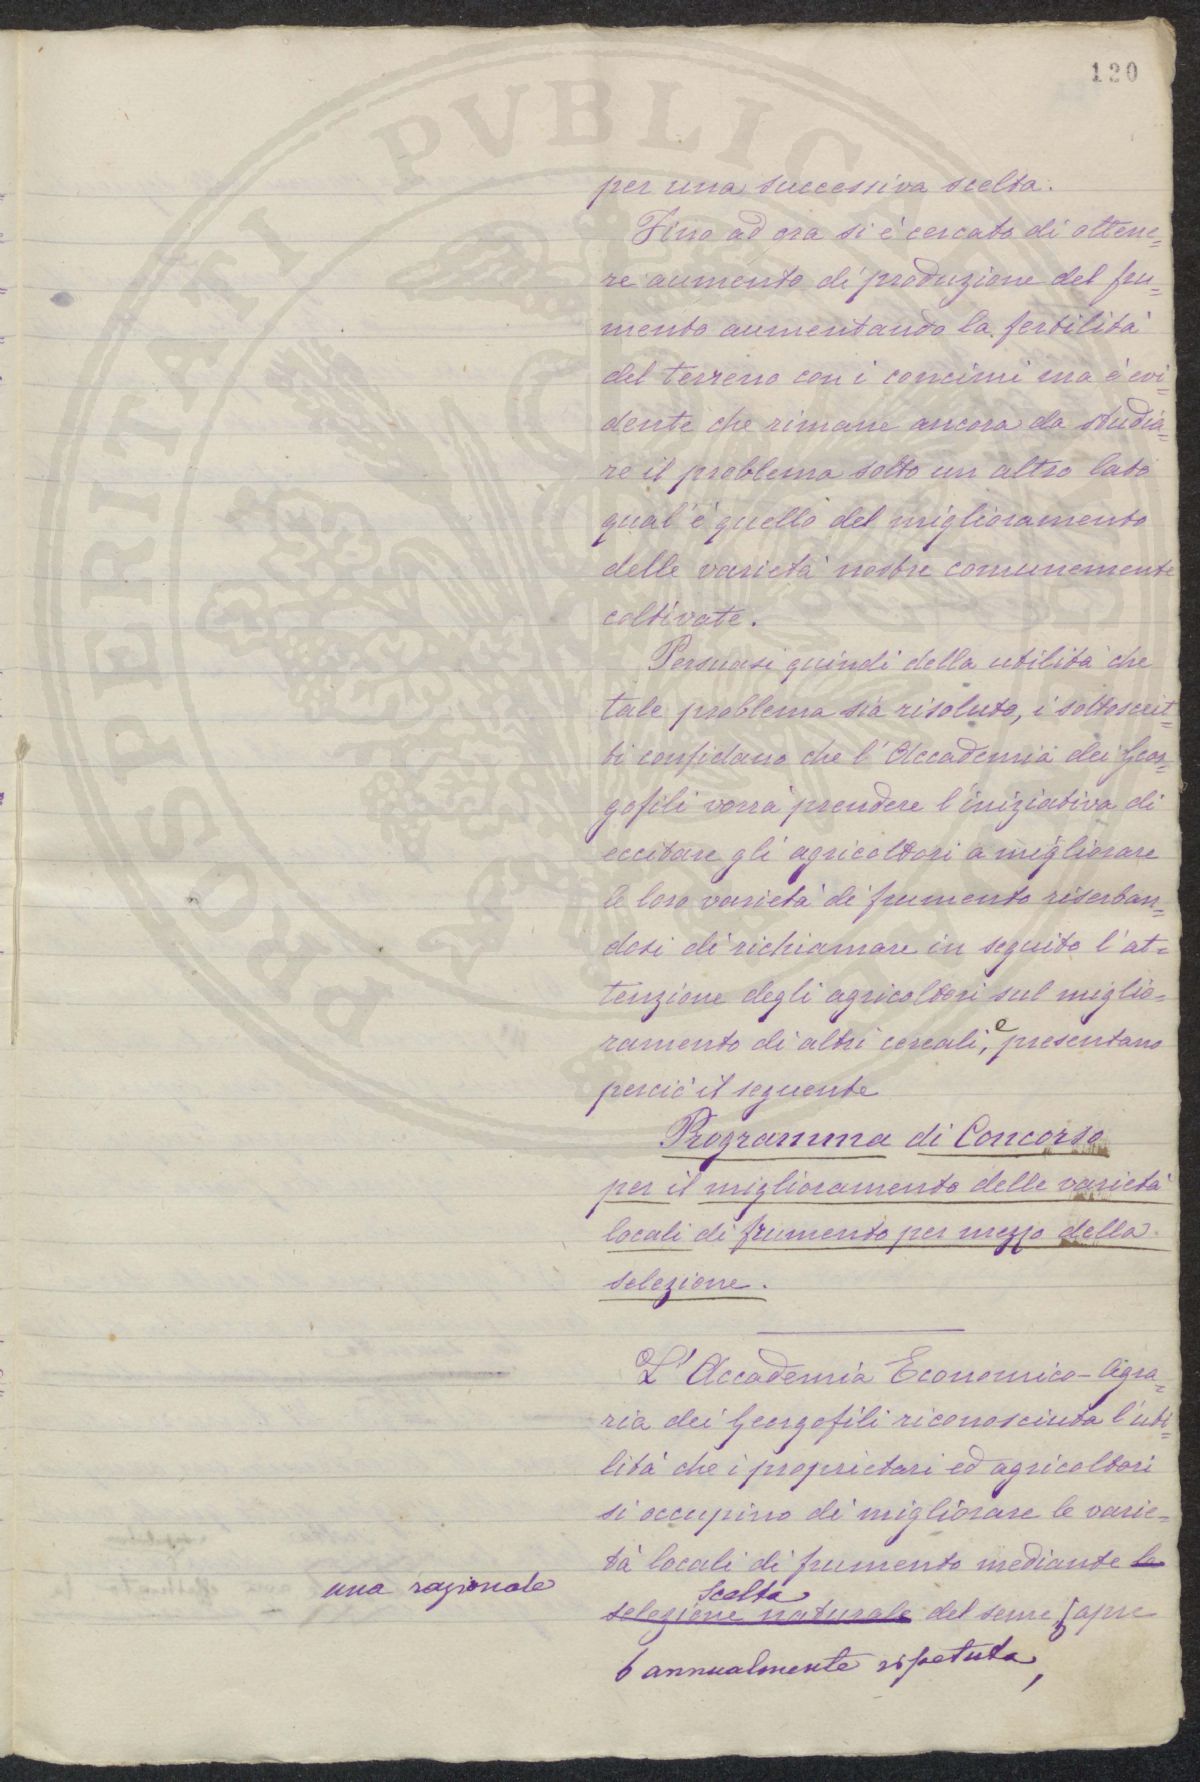 120
PROSPERITATI PVBLICAE
per una successiva scelta.
Fino ad ora si è cercato di ottene=
re aumento di produzione del fru=
mento aumentando la fertilità
del terreno con i concimi ma è evi=
dente che rimane ancora da studia=
re il problema sotto un altro lato
qual'è quello del miglioramento
delle varietà nostre comunemente
coltivate.
Persuasi quindi della utilità che
tale problema sia risoluto, i sottoscrit=
ti confidano che l'Accademia dei Geor=
gofili vorrà prendere l'iniziativa di
eccitare gli agricoltori a migliorare
le loro varietà di frumento riserban=
dosi di richiamare in seguito l'at=
tenzione degli agricoltori sul miglio=
ramento di altri cereali, e presentano
perciò il seguente
Programma di Concorso
per il miglioramento delle varietà
locali di frumento per mezzo della
selezione.
L'Accademia Economico-Agra=
ria dei Georgofili riconosciuta l'uti=
lità che i proprietari ed agricoltori
si occupino di migliorare le varie=
tà locali di frumento mediante la
una razionale scelta
selezione naturale del seme apre
annualmente ripetuta,